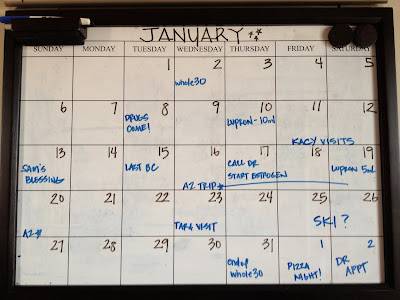 JANUARY
SUNDAY MONDAY TUESDAY WEDNESDAY THURSDAY FRIDAY SATURDAY
1 2 3 4 5
whole30
6 7 8 9 10 11 12
DRUGS
COME!
LUPRON-10ml
KACY VISITS
13 14 15 16 17 18 19
SAM'S
BLESSING
LAST BC
AZ TRIP
CALL DR
START ESTROGEN
LUPRON 5ml
20 21 22 23 24 25 26
TARA VISIT
SKI?
27 28 29 30 31 1 2
end of
whole30
PIZZA
NIGHT!
DR
APPT